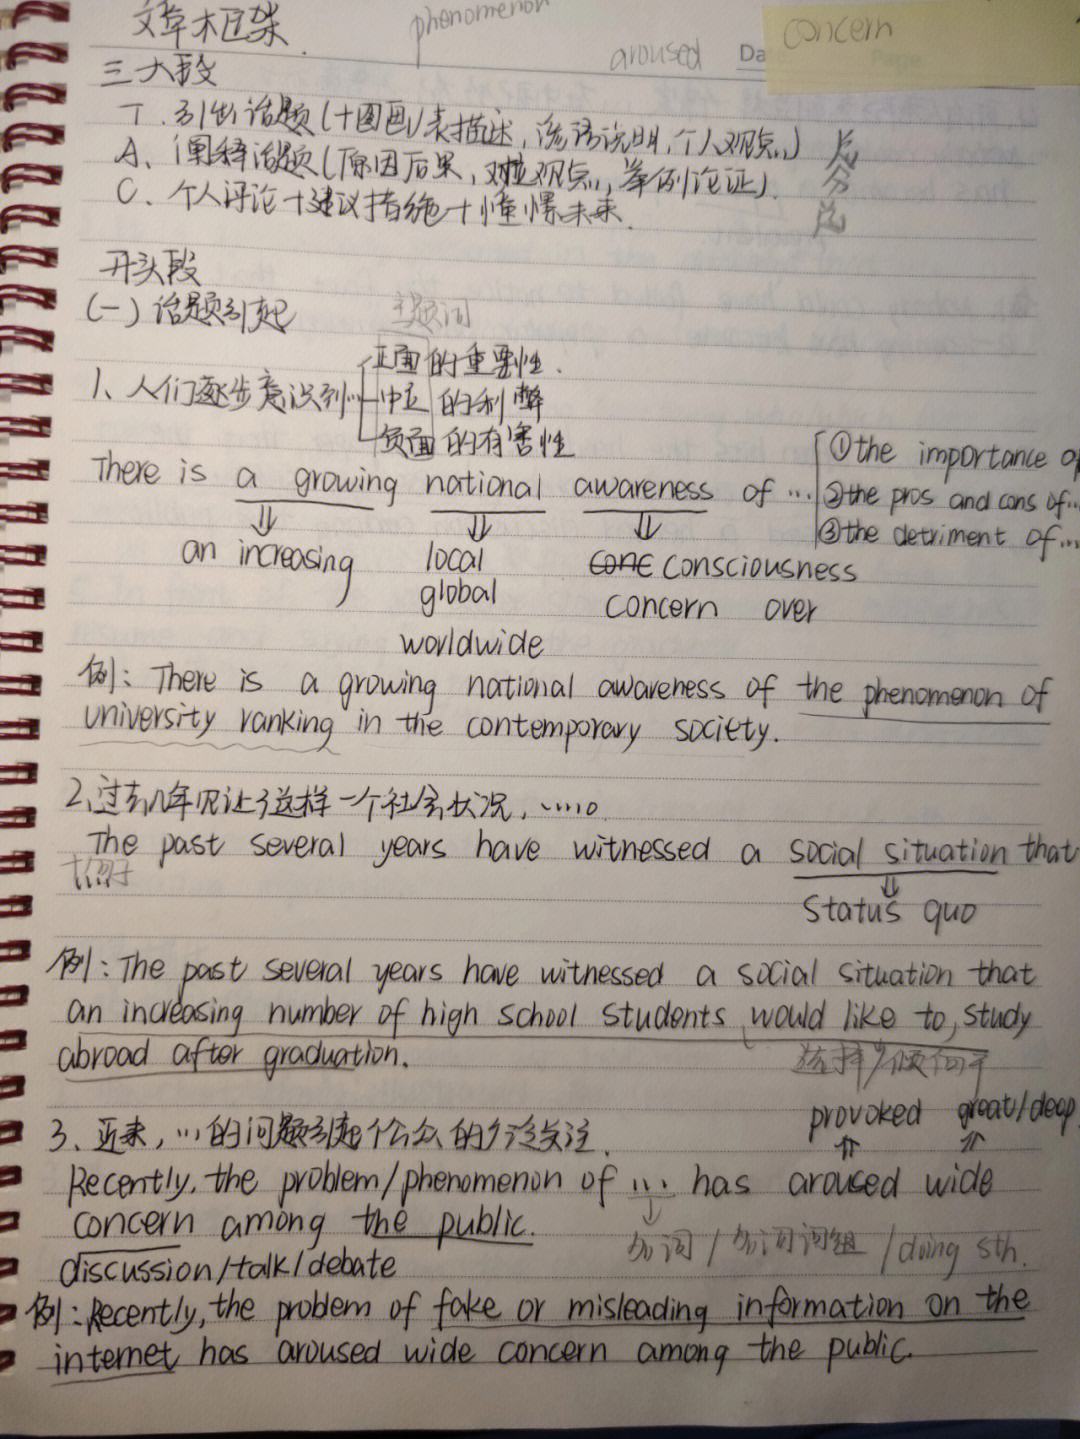 文章框架
phenomenon
aroused
Da
concern
三大段
T. 引出话题(+图画/表描述,谚语说明,个人观点)
A、阐释话题(原因后果,对应观点,举例论证).
C、个人评论+建议措施+憧憬未来.
总
分
总
开头段
(一)话题引起
主题词
1、人们逐步意识到...
正面的重要性.
中立的利弊
负面的有害性
There is a growing national awareness of ...
①the importance of
②the pros and cons of...
③the detriment of...
an increasing
local
global
worldwide
consciousness
concern over
例: There is a growing national awareness of the phenomenon of
university ranking in the contemporary society.
2、过去几年见证了这样一个社会状况, ......
The past several years have witnessed a social situation that
+例子
status quo
例: The past several years have witnessed a social situation that
an increasing number of high school students would like to study
abroad after graduation.
选择/倾向于
provoked great/deep
3、近来, ... 的问题引起公众的广泛关注.
Recently, the problem/phenomenon of ... has aroused wide
concern among the public.
discussion/talk/debate
名词/名词词组/doing sth.
例: Recently, the problem of fake or misleading information on the
internet has aroused wide concern among the public.